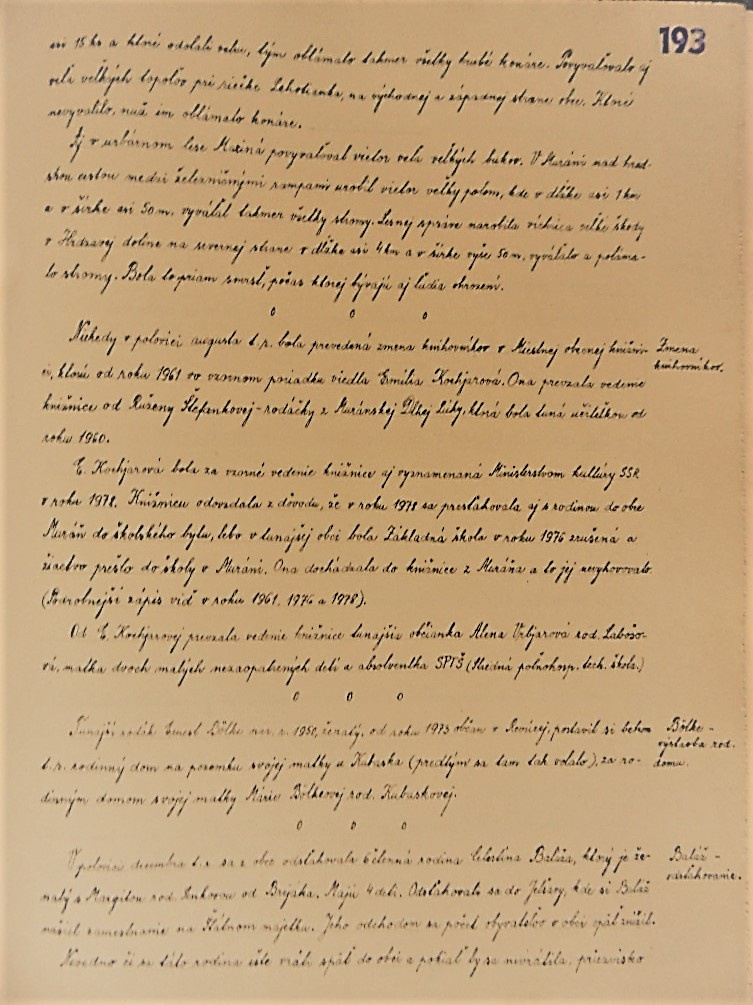 193
asi 15 ks a ktoré odolali vetru, tým oblámalo takmer všetky hrubé konáre. Povyvaľovalo aj
veľa veľkých topoľov pri riečke Lehotianka, na východnej a západnej strane obce. Ktoré
nevyvalilo, nuž im oblámalo konáre.
Aj v urbárnom lese Maziná povyvaľoval vietor veľa veľkých bukov. V Muráni nad hrad-
skou cestou medzi železničnými rampami urobil vietor veľký polom, kde v dĺžke asi 1 km
a v šírke asi 50 m. vyváľal takmer všetky stromy. Lesnej správe narobila víchrica veľké škody
v Hrdzavej doline na severnej strane v dĺžke asi 4 km a v šírke vyše 50 m, vyváľalo a poláma-
lo stromy. Bola to priam smršť, počas ktorej bývajú aj ľudia ohrození.
o o o
Niekedy v polovici augusta t.r. bola prevedená zmena knihovníkov v Miestnej obecnej knižni-
ci, ktorú od roku 1961 vo vzornom poriadku viedla Emília Kochjarová. Ona prevzala vedenie
knižnice od Ruženy Štefankovej - rodáčky z Muránskej Dlhej Lúky, ktorá bola tuná učiteľkou od
roku 1960.
Zmena
knihovníkov.
E. Kochjarová bola za vzorné vedenie knižnice aj vyznamenaná Ministerstvom kultúry SSR
v roku 1978. Knižnicu odovzdala z dôvodu, že v roku 1978 sa presťahovala aj s rodinou do obce
Muráň do školského bytu, lebo v tunajšej obci bola Základná škola v roku 1976 zrušená a
žiactvo prešlo do školy v Muráni. Ona dochádzala do knižnice z Muráňa a to jej nevyhovovalo.
(Podrobnejší zápis viď v roku 1961, 1976 a 1978).
Od E. Kochjarovej prevzala vedenie knižnice tunajšia občianka Alena Vrbjarová rod. Labošo-
vá, matka dvoch malých nezaopatrených detí a absolventka SPTŠ (Stredná poľnohosp. tech. škola.)
o o o
Tunajší rodák Ernest Bölke nar. r. 1950, ženatý, od roku 1973 občan v Revúcej, postavil si behom
t.r. rodinný dom na pozemku svojej matky u Kubaska (predtým sa tam tak volalo), za ro-
dinným domom svojej matky Márie Bölkeovej rod. Kubaskovej.
Bölke -
výstavba rod.
domu.
o o o
V polovici decembra t.r. sa z obce odsťahovala 6 členná rodina Celestína Baláža, ktorý je že-
natý s Margitou rod. Hnkovou od Brijaka. Majú 4 deti. Odsťahovali sa do Jelšavy, kde si Baláž
našiel zamestnanie na Štátnom majetku. Jeho odchodom sa počet obyvateľov v obci opäť znížil.
Nevedno či sa táto rodina ešte vráti späť do obci a pokiaľ by sa nevrátila, priezvisko
Baláž -
odsťahovanie.